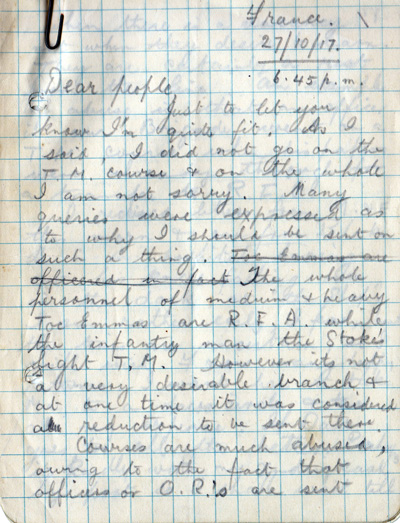 France.
27/10/17.
6.45 p.m.
Dear people,
Just to let you
know I'm quite fit. As I
said, I did not go on the
T.M. course & on the whole
I am not sorry. Many
queries were expressed as
to why I should be sent on
such a thing. Toc Emmas are
officered in fact The whole
personnel of medium & heavy
Toc Emmas are R.F.A. while
the infantry man the Stokes
light T.M. However its not
a very desirable branch &
at one time it was considered
a reduction to be sent there.
Courses are much abused,
owing to the fact that
officers or O.R.'s are sent